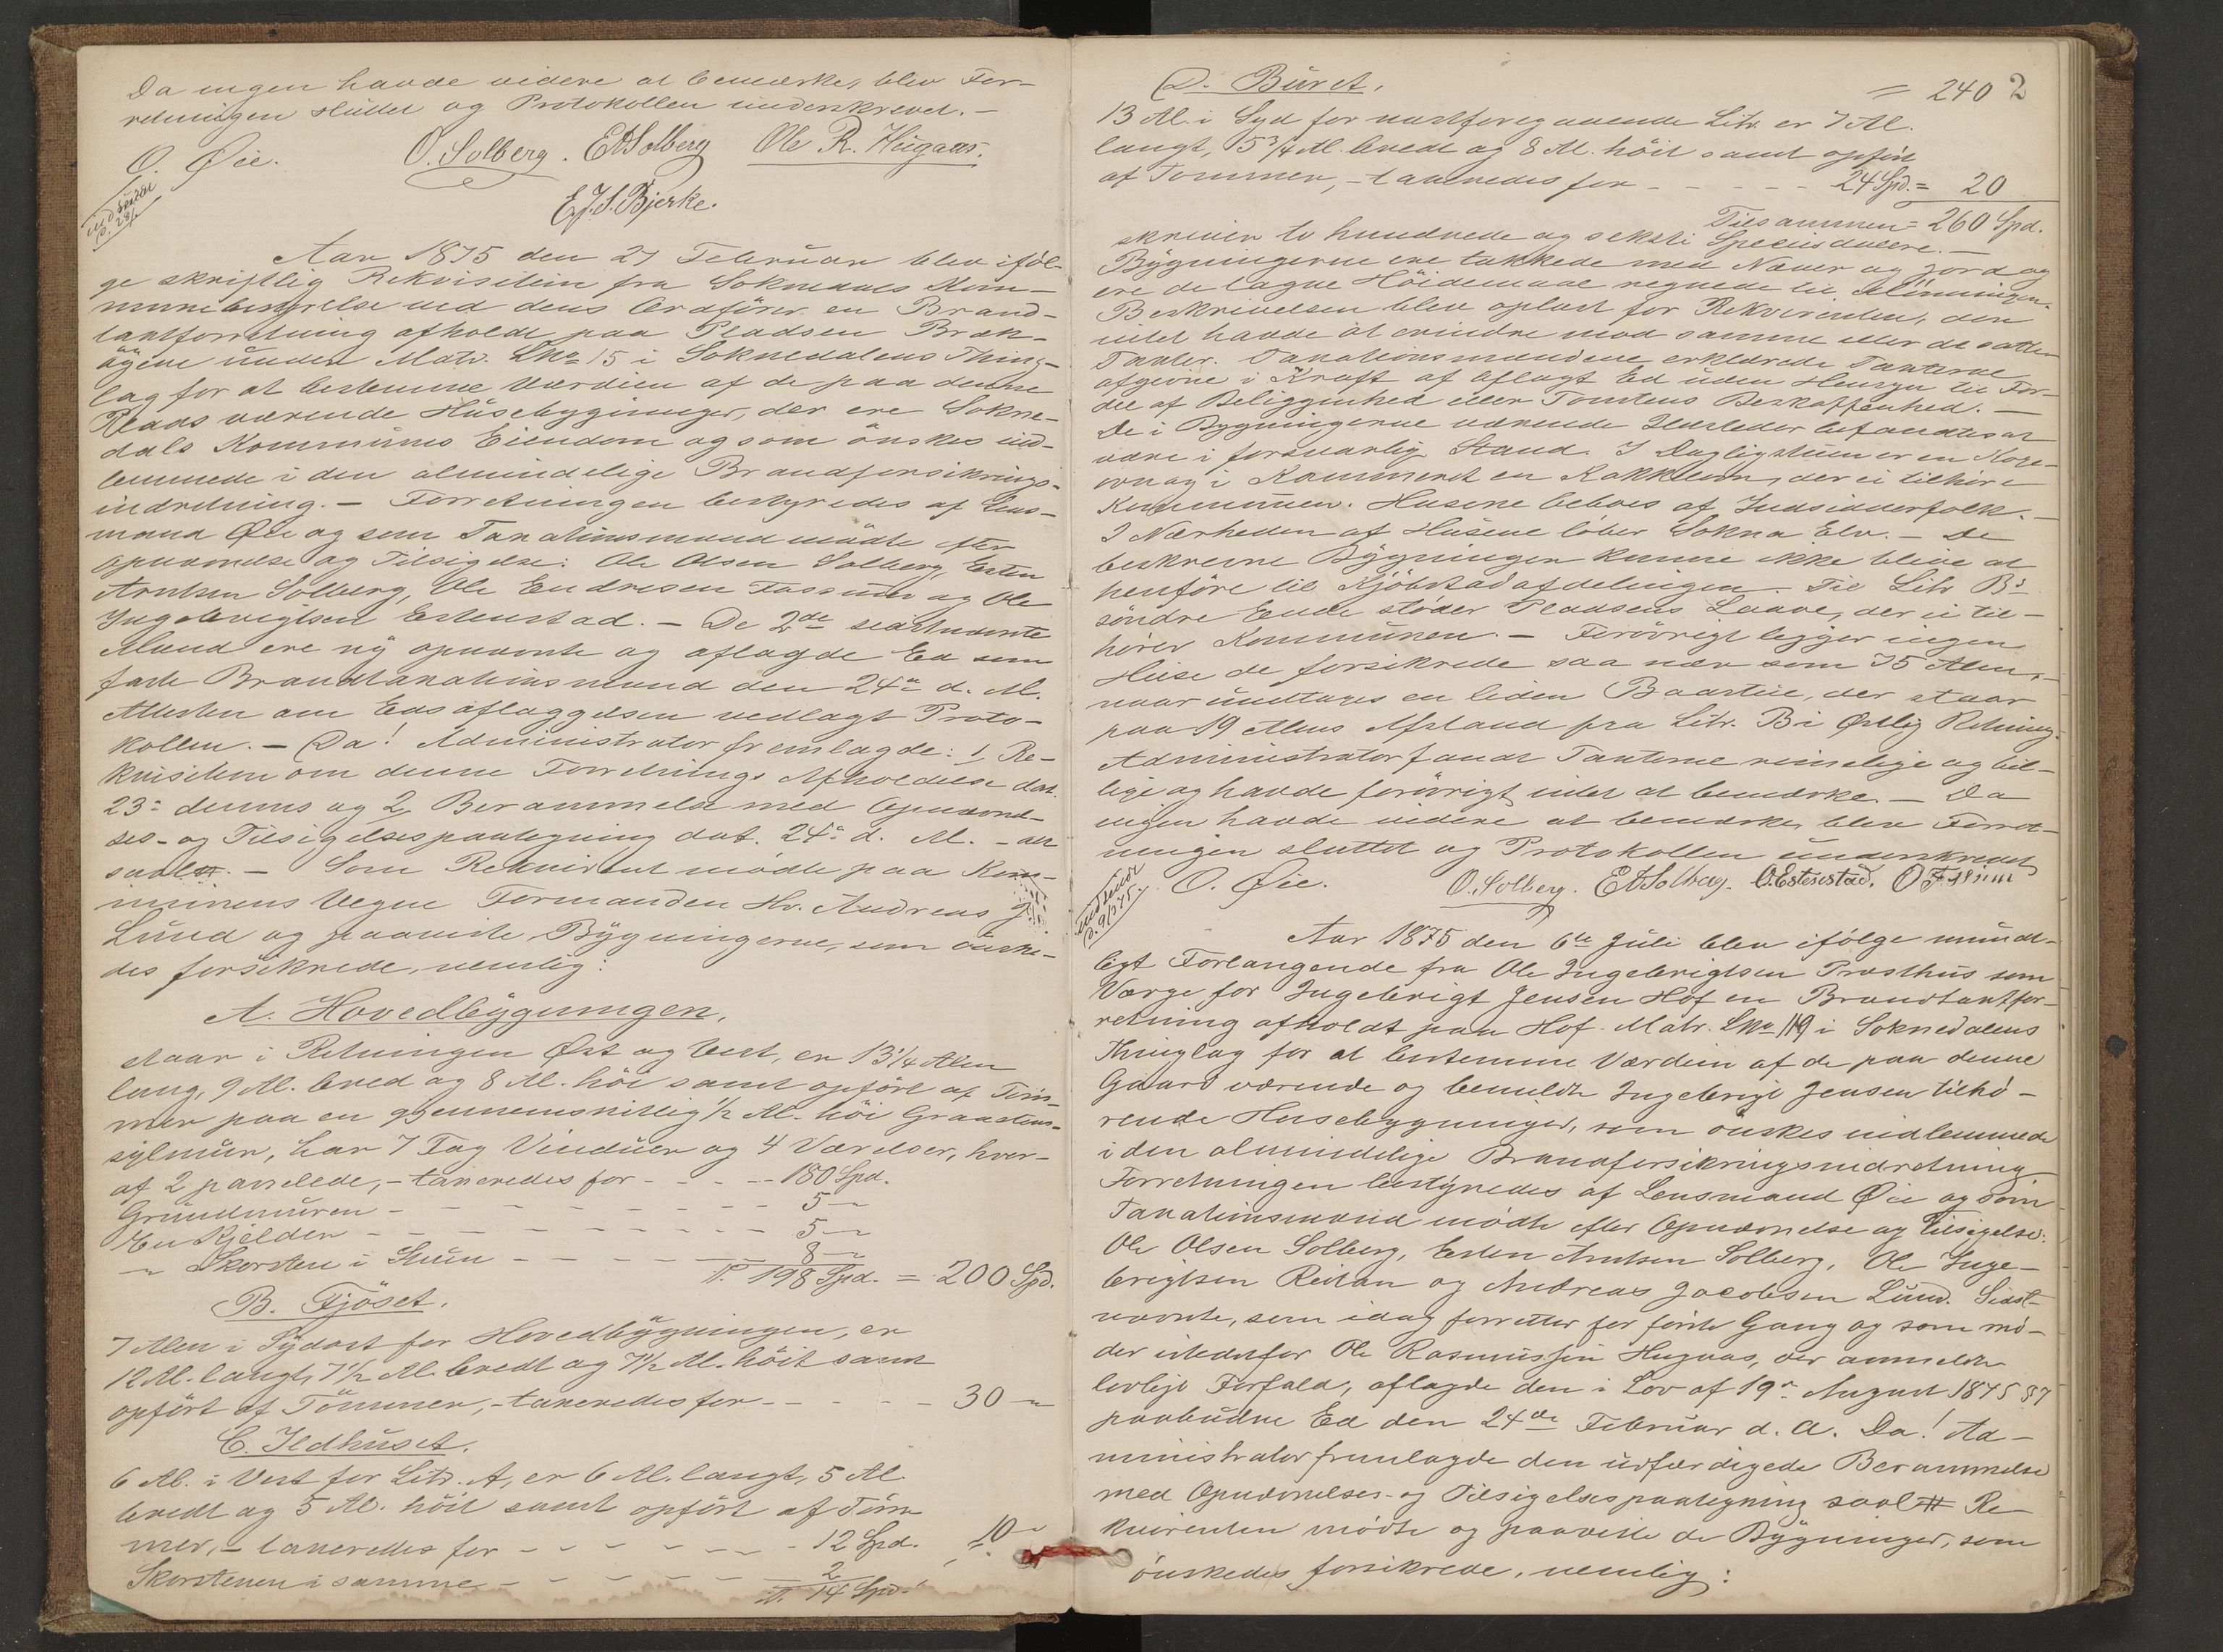 Da ingen havde videre at bemærke, blev For-
retningen sluttet og Protokollen underskrevet. –
O. Øie. O. Solberg. E A Solberg Ole R. Hugaas.
E. J. S. Bjerke.
Aar 1875 den 27 Februar blev iføl-
ge skriftlig Rekvisition fra Soknedals Kom-
munebestyrelse ved dens Ordfører en Brand-
taxtforretning afholdt paa Pladsen Bræk-
øgene under Matr. LNo 15 i Soknedalens Thing-
lag for at bestemme Værdien af de paa denne
Plads værende Husebygninger, der ere Sokne-
dals Kommunes Eiendom og som ønskes ind-
lemmede i den almindelige Brandforsikrings-
indretning. – Forretningen bestyredes af Lens-
mand Øie og som Taxationsmænd mødte efter
Opnævnelse og Tilsigelse: Ole Olsen Solberg, Esten
Arntsen Solberg, Ole Endresen Fossum og Ole
Ingebrigtsen Estenstad. – De 2de sidstnævnte
Mænd ere ny opnævnte og aflagde Ed som
faste Brandtaxationsmænd den 24de d. M.
Attesten om Edsaflæggelsen vedlagt Proto-
kollen. – Da! Administrator fremlagde: 1, Re-
kvisition om denne Forretnings Afholdelse dat.
23de dennes og 2, Berammelse med Opnævnel-
ses- og Tilsigelsespaategning dat. 24de d. M. – alt
saal. – Som Rekvirent mødte paa Kom-
munens Vegne Formanden Hr. Andreas J.
Lund og paaviste Bygningerne, som ønske-
des forsikrede, nemlig:
A. Hovedbygningen,
staar i Retningen Øst og Vest, er 13 1/4 Alen
lang, 9 Al. bred og 8 Al. høi samt opført af Tøm-
mer paa en gjennemsnitlig 1/2 Al. høi Graastens-
sylmur, har 7 Fag Vinduer og 4 Værelser, hvor-
af 2 panelede, – taxeredes for - - - - 180 Spd.
Grundmuren - - - - - - - 5 "
En Kjelder - - - - - - - 5 "
" Skorsten i Stuen - - - - 8 "
Tl. 198 Spd. = 200 Spd.
B. Fjøset.
7 Alen i Sydost for Hovedbygningen, er
12 Al. langt, 7 1/2 Al. bredt og 7 1/2 Al. høit samt
opført af Tømmer, – taxeredes for - - - - - 30 "
C. Ildhuset.
6 Al. i Vest for Litr. A, er 6 Al. langt, 5 Al.
bredt og 5 Al. høit samt opført af Tøm-
mer, – taxeredes for - - - - - - 12 Spd. 10 "
Skorstenen i samme - - - - - 2
Tl. 14 Spd.
2
D. Buret. = 240
13 Al. i Syd for næstforegaaende Litr. er 7 Al.
langt, 5 3/4 Al. bredt og 8 Al. høit samt opført
af Tømmer, – taxeredes for - - - - - 24 Spd. = 20
Tilsammen = 260 Spd.
skriver to hundrede og seksti Speciesdalere. –
Bygningerne ere takkede med Næver og Jord og
ere de tagne Høidemaal regnede til Mønningen.
Beskrivelsen blev oplæst for Rekvirenten, der
intet havde at erindre mod samme eller de satte
Taxter. Taxationsmændene erklærede Taxterne
afgivne i Kraft af aflagt Ed uden Hensyn til For-
del af Beliggenhed eller Tomtens Beskaffenhed. –
De i Bygningerne værende Ildsteder befandtes at
være i forsvarlig Stand. I Dagligstuen er en Koge-
ovn og i Kammeret en Kakkelovn, der ei tilhøre
Kommunen. Husene beboes af Indsidderfolk. –
I Nærheden af Husene løber Sokna Elv. – De
beskrevne Bygninger kunne ikke blive at
henføre til Kjøbstadafdelingen. Til Litr B's
søndre Ende støder Pladsens Laave, der ei til-
hører Kommunen. – Forøvrigt ligger ingen
Huse de forsikrede saa nær som 75 Alen,
naar undtages en liden Baadstue, der staar
paa 19 Alens Afstand fra Litr. B i Østlig Retning.
Administrator fandt Taxterne rimelige og bil-
lige og havde forøvrigt intet at bemærke. – Da
ingen havde videre at bemærke, blev Forret-
ningen sluttet og Protokollen underskrevet
O. Øie. O. Solberg. E A Solberg. O. Estenstad. O Fossum
Aar 1875 den 6te Juli blev ifølge mundt-
ligt Forlangende fra Ole Ingebrigtsen Præsthus som
Værge for Ingebrigt Jensen Hof en Brandtaxtfor-
retning afholdt paa Hof Matr. LNo 119 i Soknedalens
Thinglag for at bestemme Værdien af de paa denne
Gaard værende og bemeldte Ingebrigt Jensen tilhø-
rende Husebygninger, som ønskes indlemmede
i den almindelige Brandforsikringsindretning
Forretningen bestyredes af Lensmand Øie og som
Taxationsmænd mødte efter Opnævnelse og Tilsigelse:
Ole Olsen Solberg, Esten Arntsen Solberg, Ole Inge-
brigtsen Reitan og Andreas Jacobsen Lund. Sidst-
nævnte, som idag forretter for første Gang og som mø-
der istedenfor Ole Rasmussen Hugaas, der anmeldte
lovligt Forfald, aflagde den i Lov af 19de August 1845 § 7
paabudne Ed den 24de Februar d. A. Da! Ad-
ministrator fremlagde den udfærdigede Berammelse
med Opnævnelses- og Tilsigelsespaategning saal. Re-
kvirenten mødte og paaviste de Bygninger, som
ønskedes forsikrede, nemlig: